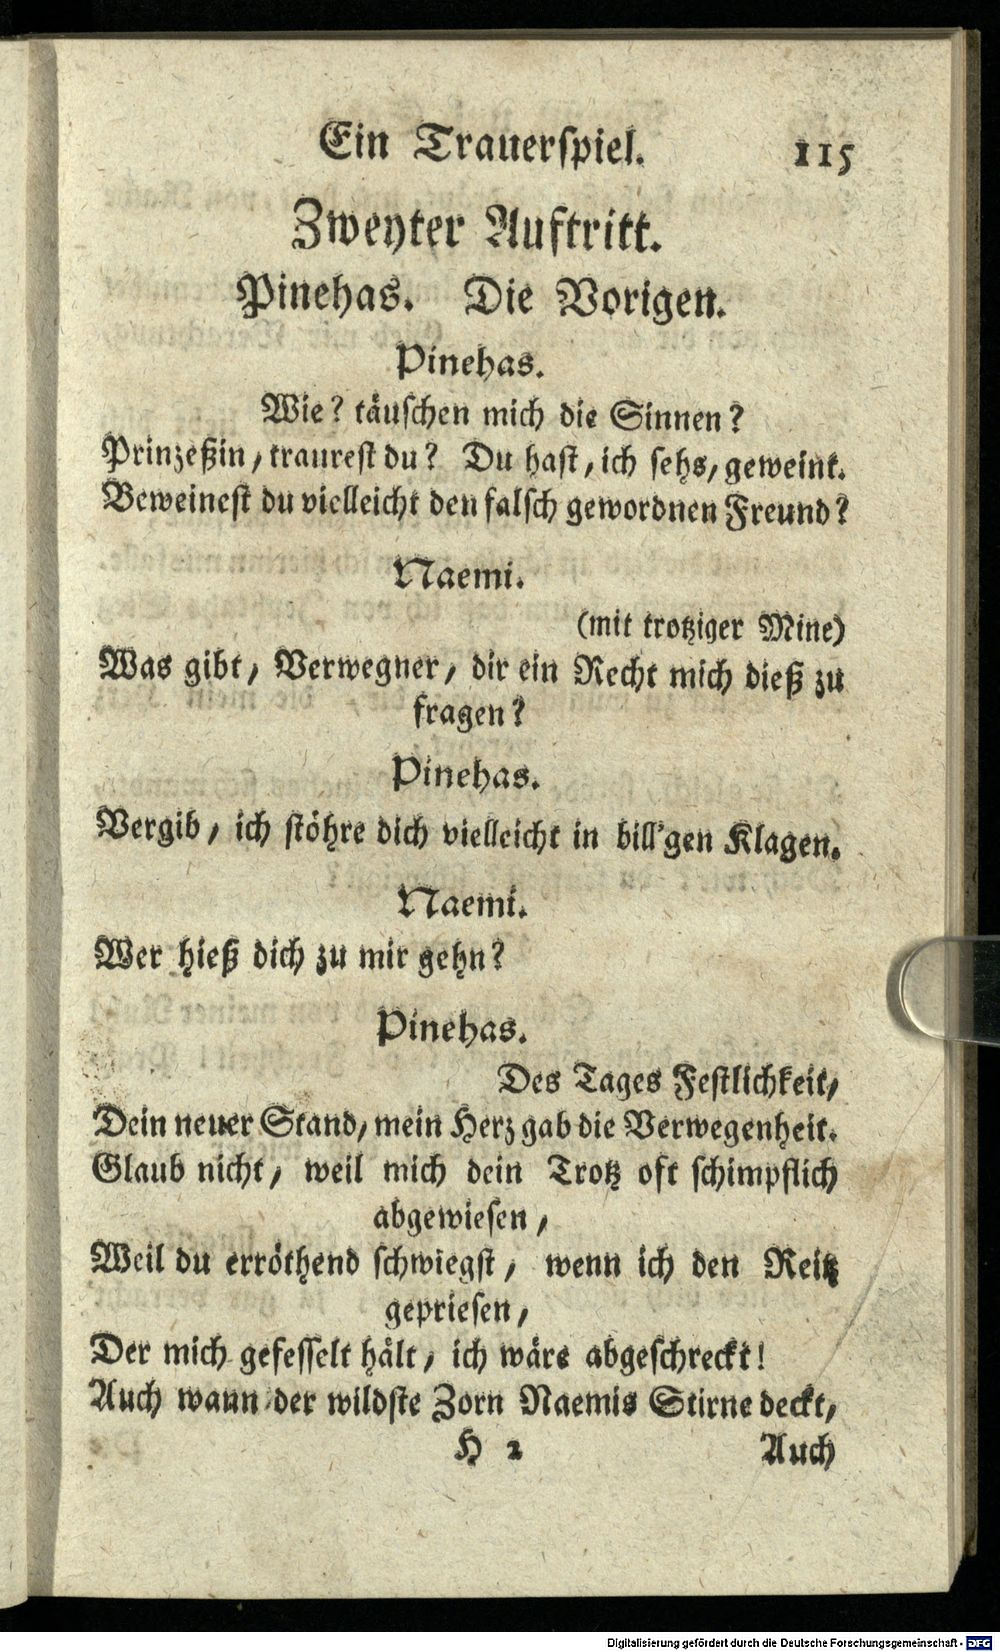 Ein Trauerſpiel. 115
Zweyter Auftritt.
Pinehas. Die Vorigen.
Pinehas.
Wie? täuſchen mich die Sinnen?
Prinzeßin, traureſt du? Du haſt, ich ſehs, geweint.
Beweineſt du vielleicht den falſch gewordnen Freund?
Naemi.
(mit trotziger Mine)
Was gibt, Verwegner, dir ein Recht mich dieß zu
fragen?
Pinehas.
Vergib, ich ſtöhre dich vielleicht in bill'gen Klagen.
Naemi.
Wer hieß dich zu mir gehn?
Pinehas.
Des Tages Feſtlichkeit,
Dein neuer Stand, mein Herz gab die Verwegenheit.
Glaub nicht, weil mich dein Trotz oft ſchimpflich
abgewieſen,
Weil du erröthend ſchwiegſt, wenn ich den Reitz
geprieſen,
Der mich gefeſſelt hält, ich wäre abgeſchreckt!
Auch wann der wildſte Zorn Naemis Stirne deckt,
H 2 Auch
Digitalisierung gefördert durch die Deutsche Forschungsgemeinschaft - DFG